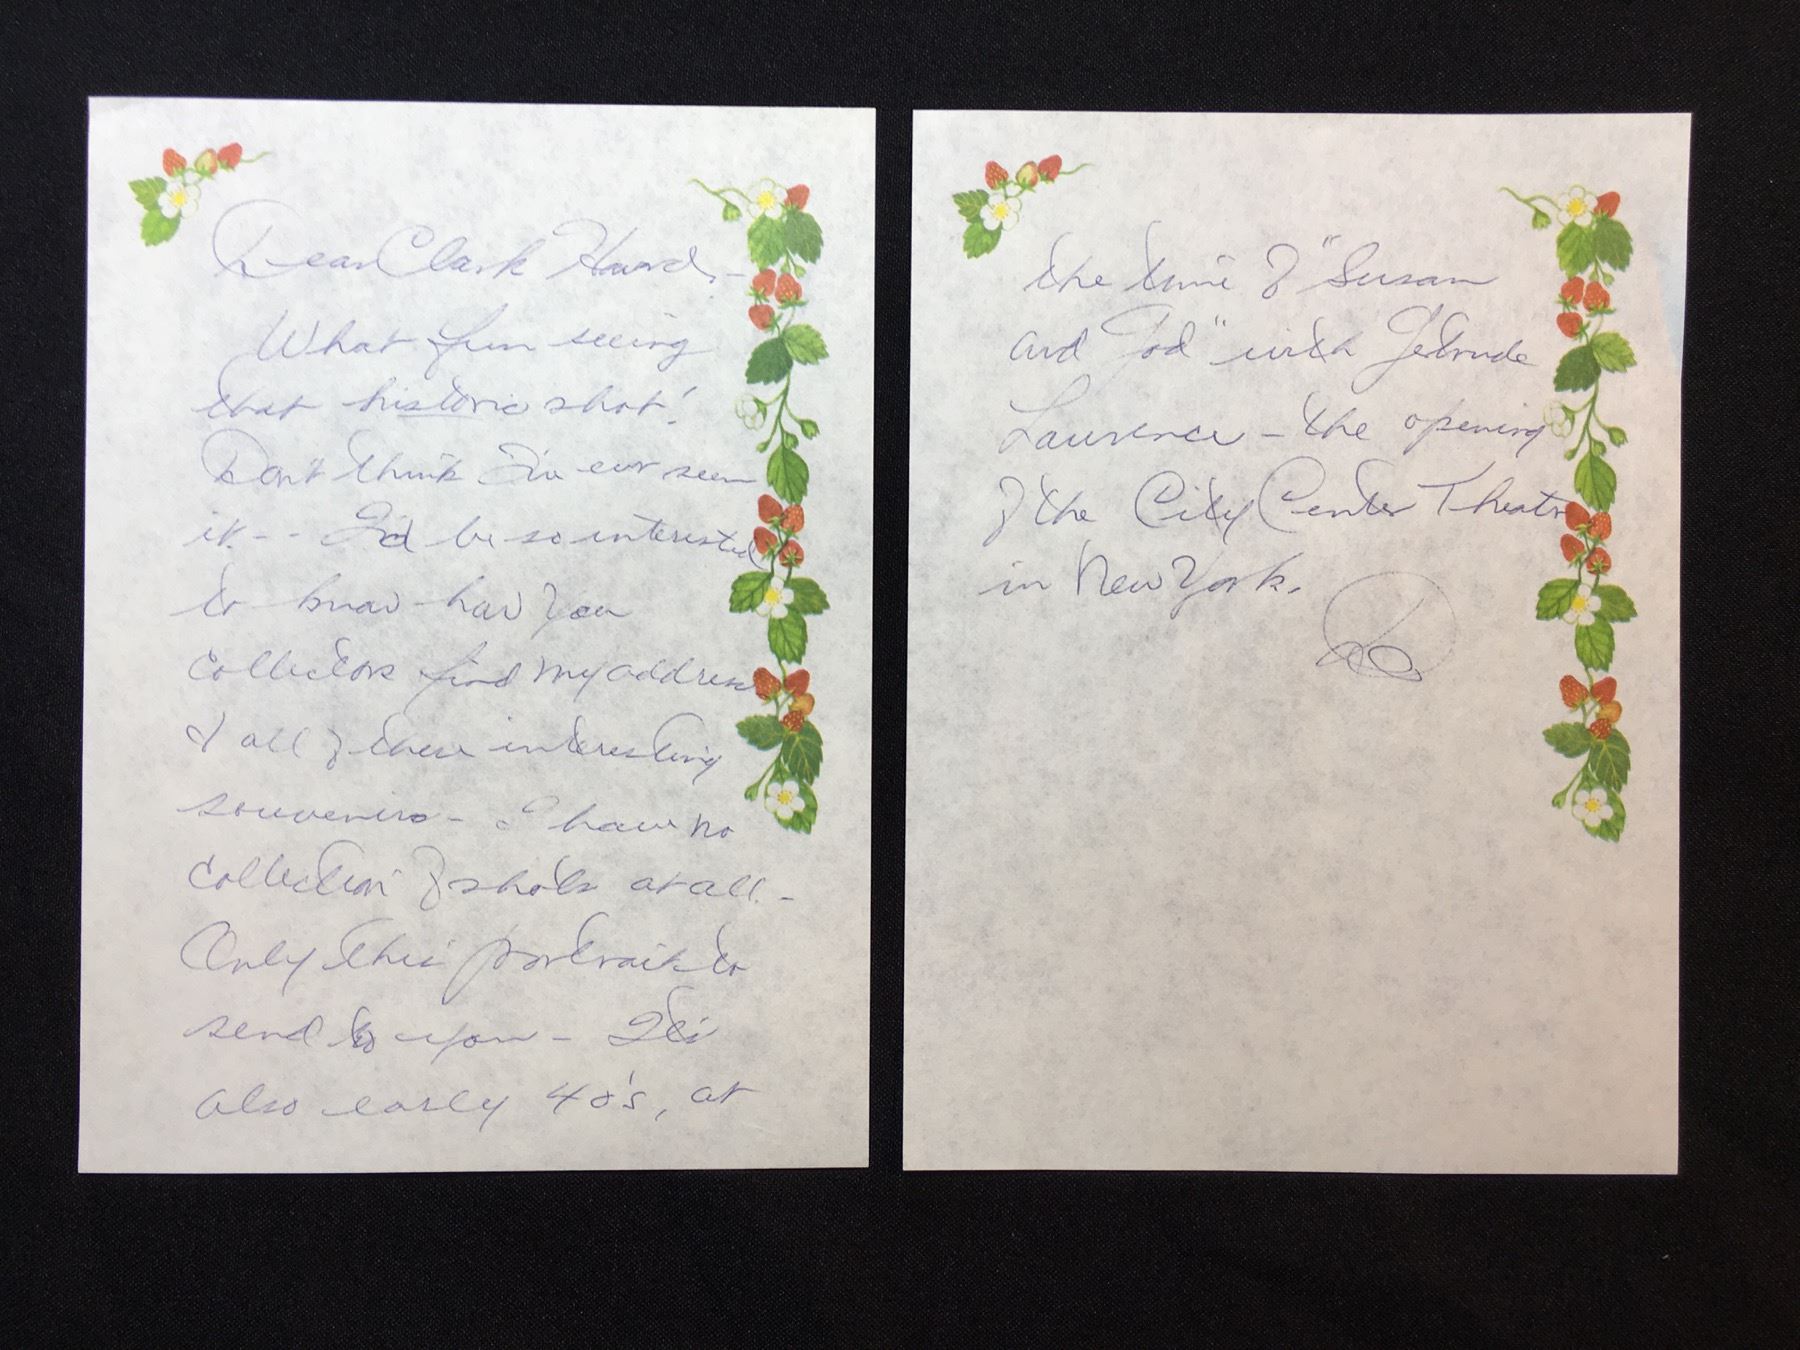 Dear Clark Havard, -
What fun seeing
that historic shot!
Don't think I've ever seen
it. - - I'd be so interested
to know how you
collectors find my address
& all of these interesting
souvenirs - I have no
collection of shots at all. -
Only this portrait to
send to you - It's
also early 40's, at
the time of "Susan
and God" with Getrude
Lawrence - the opening
of the City Center Theatre
in New York.